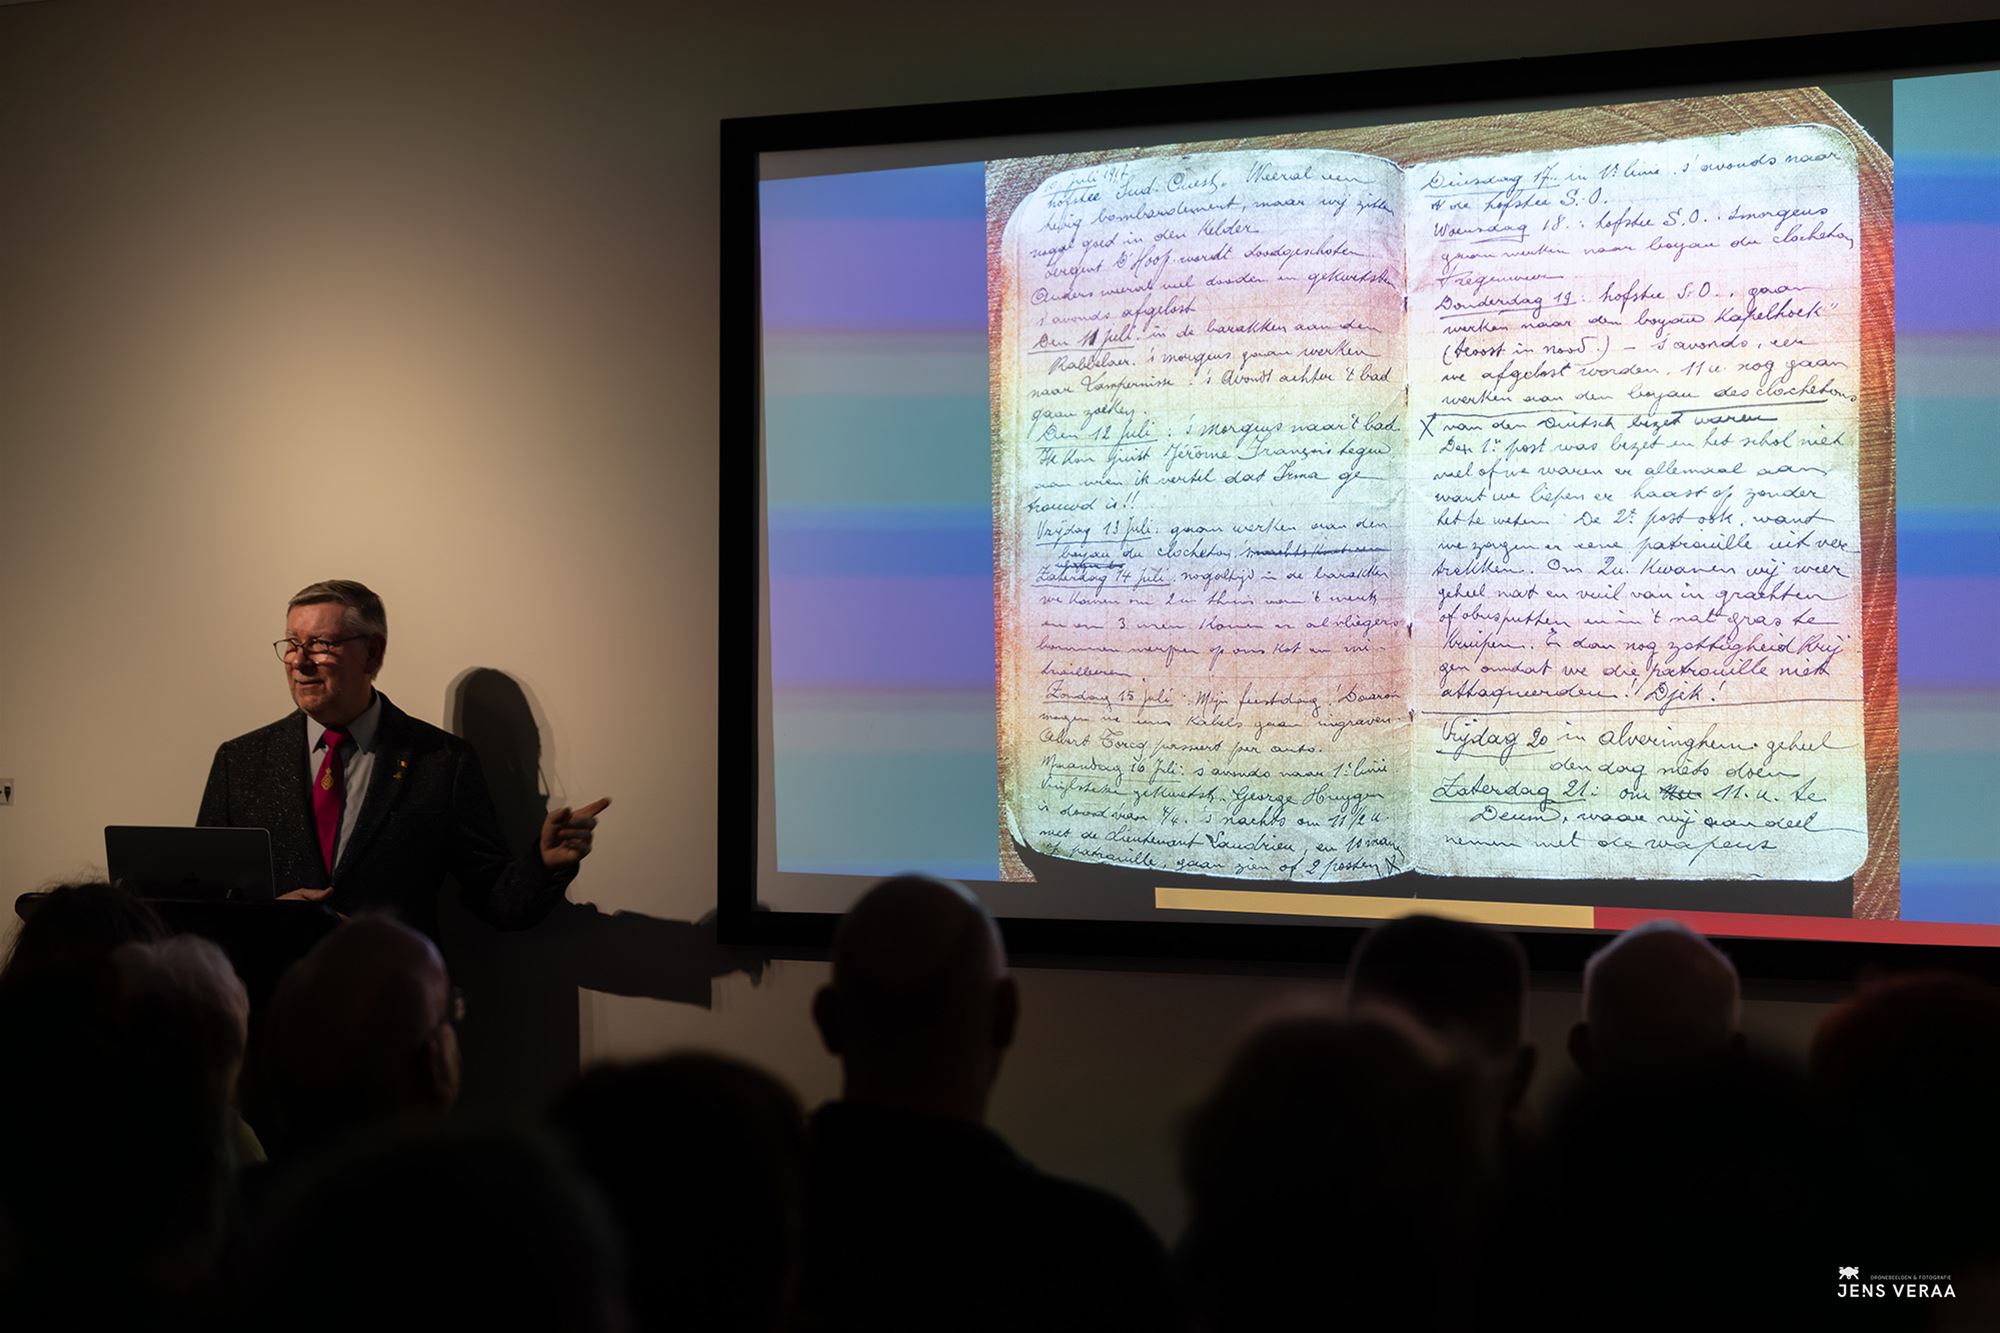 juli 1917
hofstee Sud-Ouest. Weeral een
hevig bombardement, maar wij zitten
nogal goed in den Kelder.
Sergent D'Hoop wordt doodgeschoten.
Anders weeral veel dooden en gekwetsten
s'avonds afgelost
Den 11 juli. in de barakken aan den
Rabbelaer. 's morgens gaan werken
naar Lampernisse. 's Avonds achter 't bad
gaan zoeken.
Den 12 juli: 's morgens naar 't bad
Ik kom juist Jérôme François tegen
aan wien ik vertel dat Irma ge
trouwd is!!
Vrijdag 13 juli. gaan werken aan den
boyau du clocheton.
Zaterdag 14 juli nogaltijd in de barakken
we komen om 2u thuis van 't werk
en om 3 uren komen er al vliegers
bommen werpen op ons kot en mi-
trailleeren
Zondag 15 juli: Mijn feestdag! Daarom
mogen we eens kabels gaan ingraven.
Albert Torcq passeert per auto.
Maandag 16 juli: s'avonds naar 1e linie.
gekwetst. George Huygen
is dood van 4/4. 's nachts om 11 1/2 u.
met de Lieutenant Laudrieu, en 10 man
op patrouille, gaan zien of 2 posten X
Dinsdag 17. in 1e linie. s'avonds naar
de hofstee S.O.
Woensdag 18.: hofstee S.O.. smorgens
gaan werken naar boyau du clocheton
Tregenweer
Donderdag 19: hofstee S.O., gaan
werken naar den boyau Kapelhoek"
(troost in nood.) – s'avonds, eer
we afgelost worden, 11 u. nog gaan
werken aan den boyau des clochetons
X van den Duitsch bezet waren
Den 1e post was bezet en het schol niet
veel of we waren er allemaal aan
want we liepen er haast op zonder
het te weten. De 2e post ook, want
we zagen er eene patrouille uit ver
trekken. Om 2u. kwamen wij weer
geheel nat en vuil van in grachten
of obusputten en in 't nat gras te
kruipen. En dan nog zottigheid krij
gen omdat we die patrouille niet
attaqueerden! Djek!
Vrijdag 20 in Alveringhem. geheel
den dag niets doen
Zaterdag 21: om 11. u. te
Deum, waar wij aan deel
nemen met de wapens
DRONEBEELDEN & FOTOGRAFIE
JENS VERAA